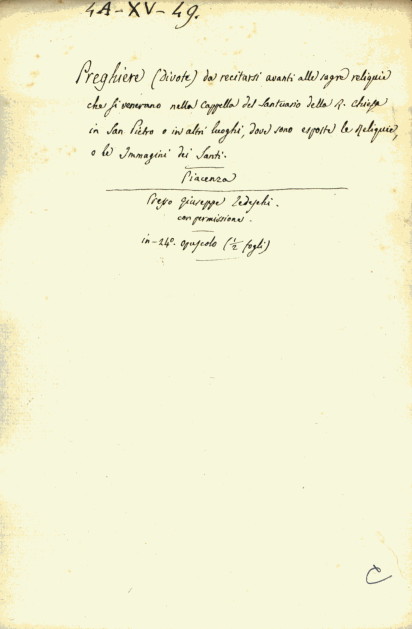 4A-XV-49.
Preghiere (divote) da recitarsi avanti alle sagre reliquie
che si venerano nella Cappella del Santuario della R. Chiesa
in San Pietro o in altri luoghi, dove sono esposte le Reliquie,
o le Immagini dei Santi.
Piacenza
Presso Giuseppe Tedeschi.
con permissione.
in-24°. opuscolo (½ fogli)
C